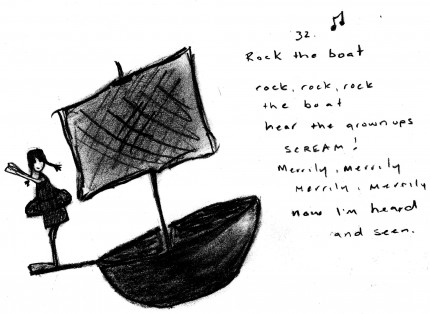 32.
Rock the boat
rock, rock, rock
the boat
hear the grownups
SCREAM!
Merrily, Merrily
Merrily, Merrily
now I'm heard
and seen.